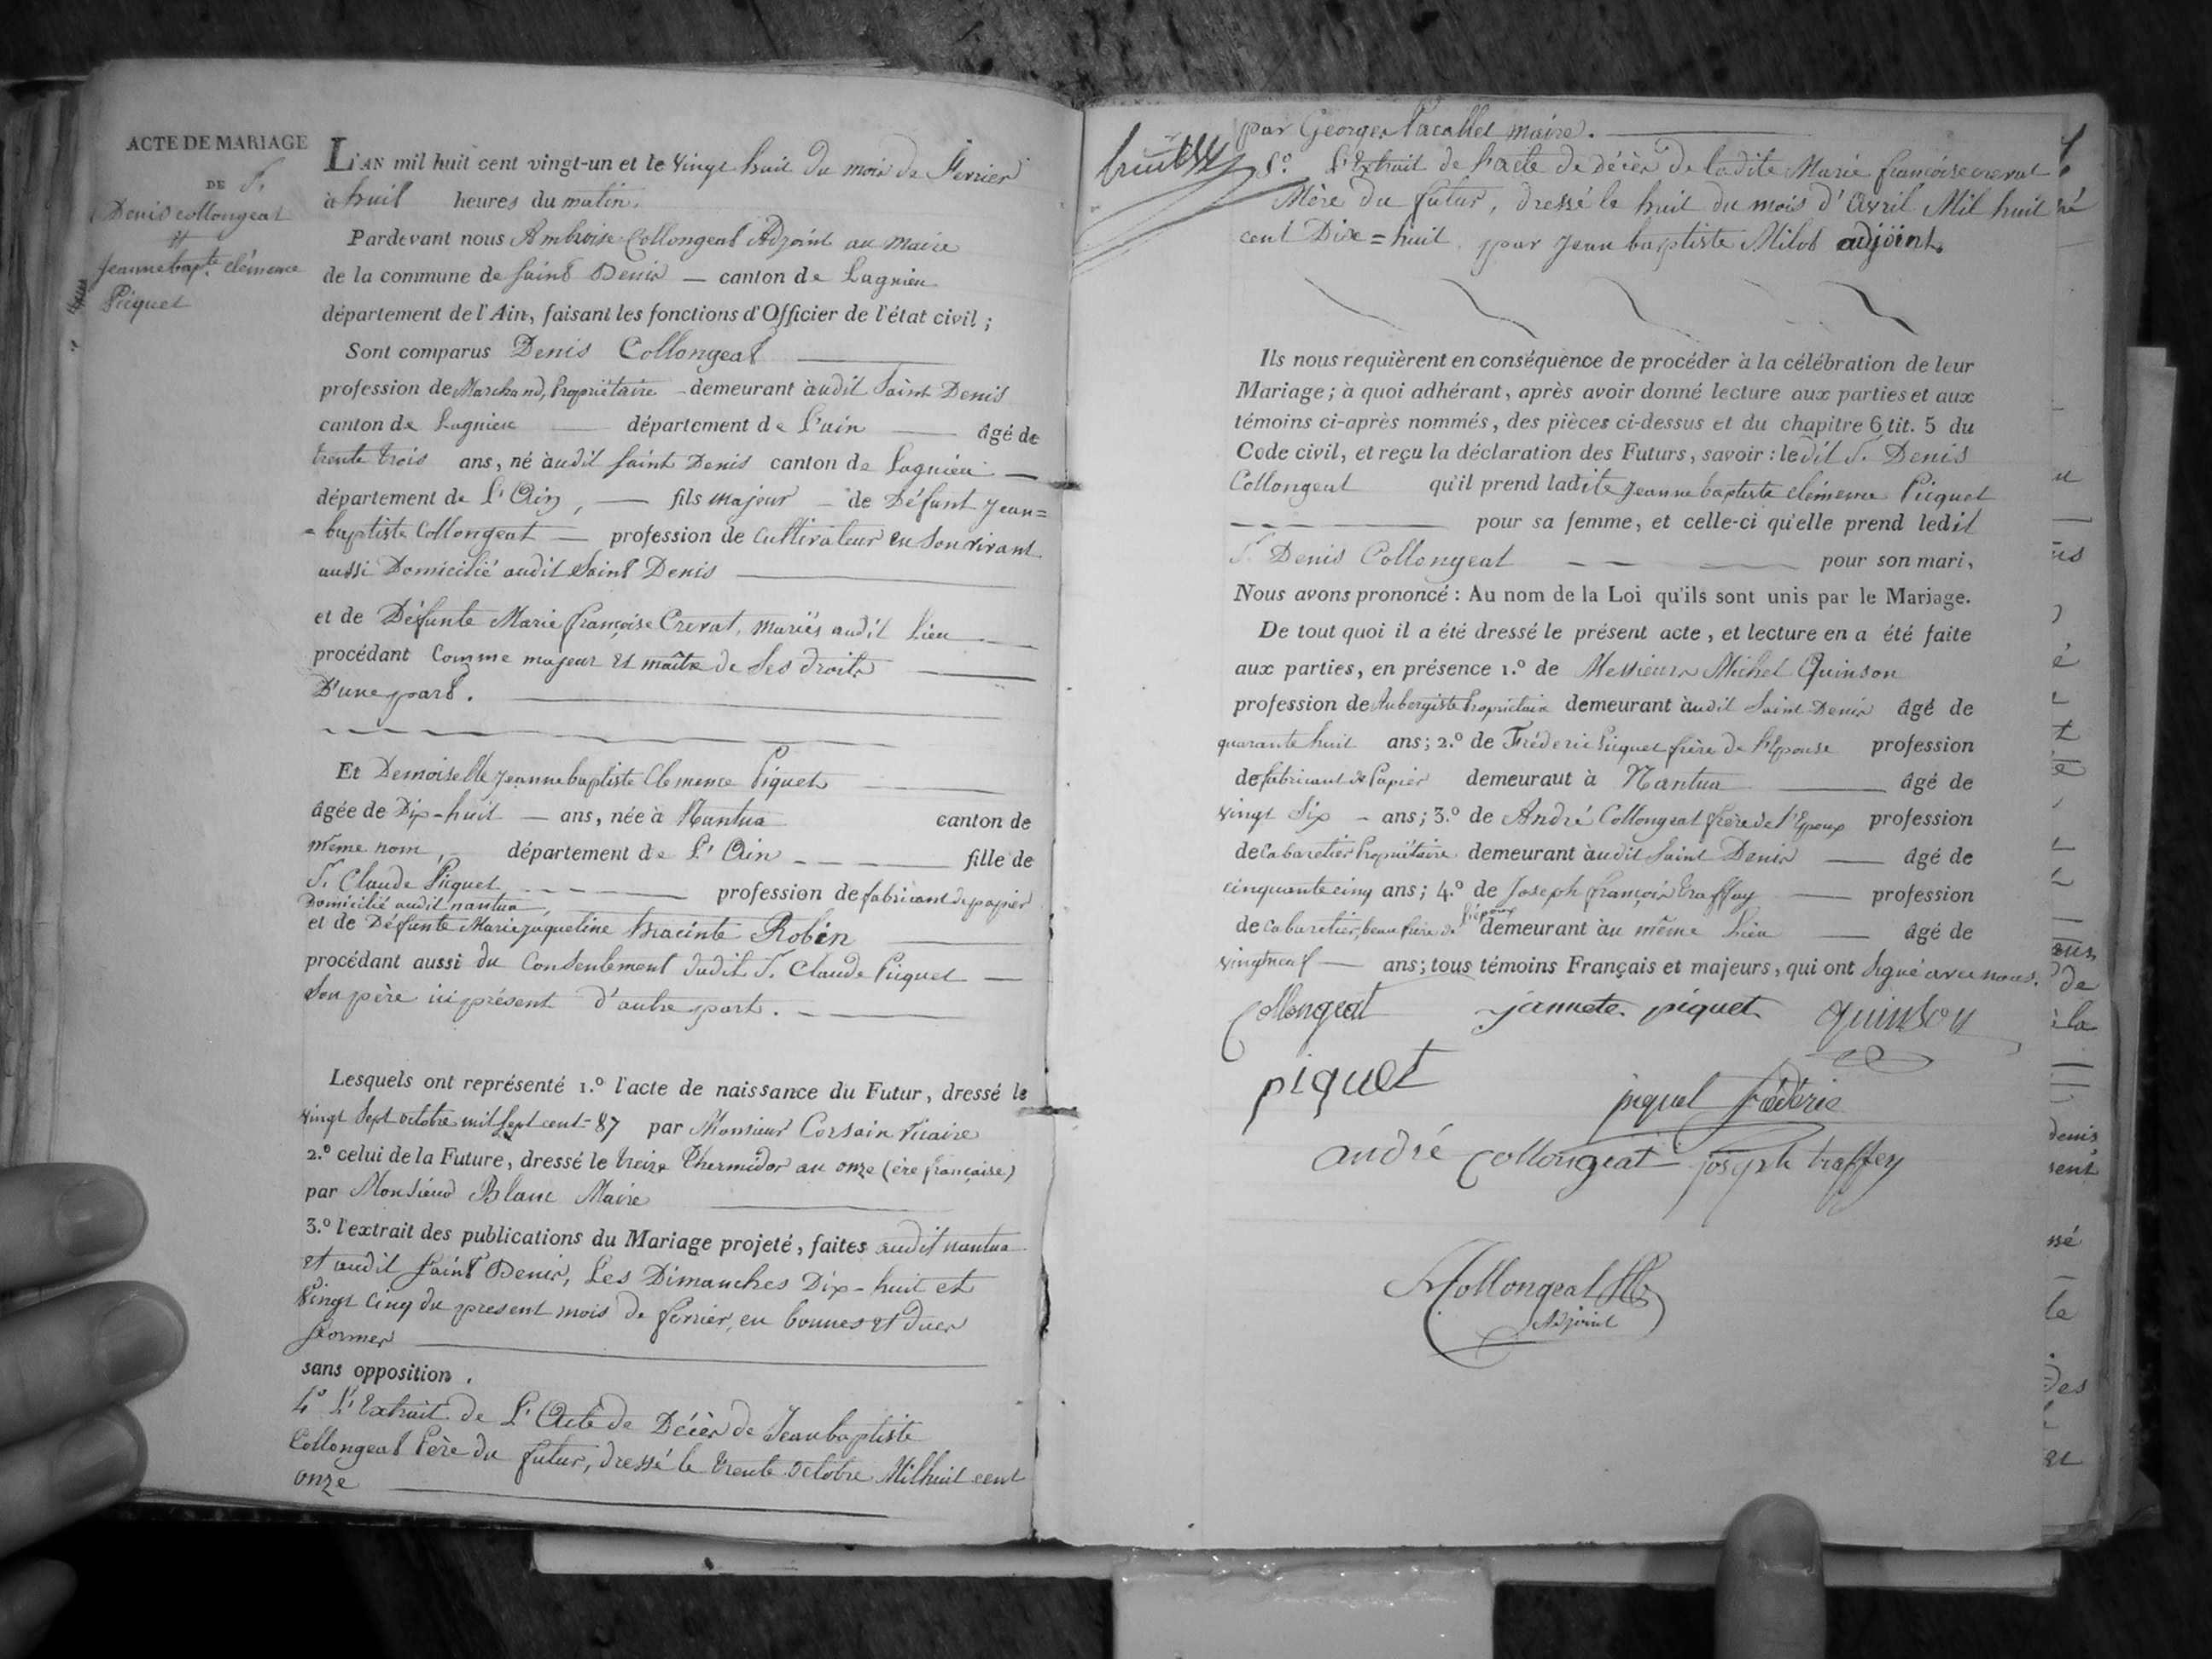 ACTE DE MARIAGE
DE S.
Denis collongeat
et
Jeanne bapte. clémence
Picquet
L'AN mil huit cent vingt-un et le vingt huit du mois de Fevrier
à huit heures du matin.
Pardevant nous Ambroise Collongeat Adjoint au Maire
de la commune de Saint Denis — canton de Lagnieu
département de l'Ain, faisant les fonctions d'Officier de l'état civil ;
Sont comparus Denis Collongeat
profession de Marchand, Propriétaire - demeurant àudit Saint Denis
canton de Lagnieu département de L'ain âgé de
trente trois ans, né àudit Saint Denis canton de Lagnieu
département de L'Ain, — fils majeur - de Défunt Jean=
=baptiste Collongeat — profession de Cultivateur en Son vivant
aussi Domicilié audit Saint Denis
et de Défunte Marie françoise Crevat, mariés audit Lieu
procédant Comme majeur et maître de Ses droits
D'une part.
Et Demoiselle Jeanne baptiste Clemence Piquet
âgée de Dix-huit — ans, née à Nantua canton de
même nom, département de L'Ain fille de
S. Claude Picquet profession de fabricant de papier
Domicilié audit nantua,
et de Défunte Marie jaqueline hiacinte Robin
procédant aussi du Consentement dudit S. Claude Picquet —
Son père ici présent d'autre part.
Lesquels ont représenté 1.º l'acte de naissance du Futur, dressé le
vingt Sept octobre mil Sept cent-87 par Monsieur Corsain Vicaire
2.º celui de la Future, dressé le treize Thermidor an onze (ère française)
par Monsieur Blanc Maire
3.º l'extrait des publications du Mariage projeté, faites audit nantua
et audit Saint Denis, Les Dimanches Dix-huit et
Vingt cinq du present mois de fevrier, en bonnes et dues
formes
sans opposition.
4º L'Extrait de L'Acte de Décès de Jean baptiste
Collongeat Père du futur, dressé le trente octobre Mil huit cent
onze
par Georges maire.
5º. L'Extrait de l'acte de Décès de ladite Marie françoise crevat
Mère du futur, dressé le huit du mois d'Avril Mil huit
cent Dixe=huit, par Jean baptiste Milot adjoint.
Ils nous requièrent en conséquence de procéder à la célébration de leur
Mariage ; à quoi adhérant, après avoir donné lecture aux parties et aux
témoins ci-après nommés, des pièces ci-dessus et du chapitre 6 tit. 5 du
Code civil, et reçu la déclaration des Futurs, savoir : ledit S. Denis
Collongeat qu'il prend ladite Jeanne baptiste clémence Picquet
pour sa femme, et celle-ci qu'elle prend ledit
S. Denis Collongeat pour son mari,
Nous avons prononcé : Au nom de la Loi qu'ils sont unis par le Mariage.
De tout quoi il a été dressé le présent acte, et lecture en a été faite
aux parties, en présence 1.º de Messieurs Michel Quinson
profession de Aubergiste Propriétaire demeurant àudit Saint Denis âgé de
quarante huit ans ; 2.º de Fréderic Picquet frère de l'Epouse profession
de fabricant de Papier demeuraut à Nantua âgé de
vingt Six - ans ; 3.º de André Collongeat frère de l'Epoux profession
de Cabaretier Propriétaire demeurant àudit Saint Denis — âgé de
cinquante cinq ans ; 4.º de Joseph françois traffay — profession
de Cabaretier, beau frère de l'époux demeurant àu même Lieu — âgé de
vingt neuf — ans ; tous témoins Français et majeurs, qui ont Signé avec nous.
Collongeat jannete piquet quinson
piquet
piquet fédéric
andré collongeat joseph traffey
Collongeat
Adjoint